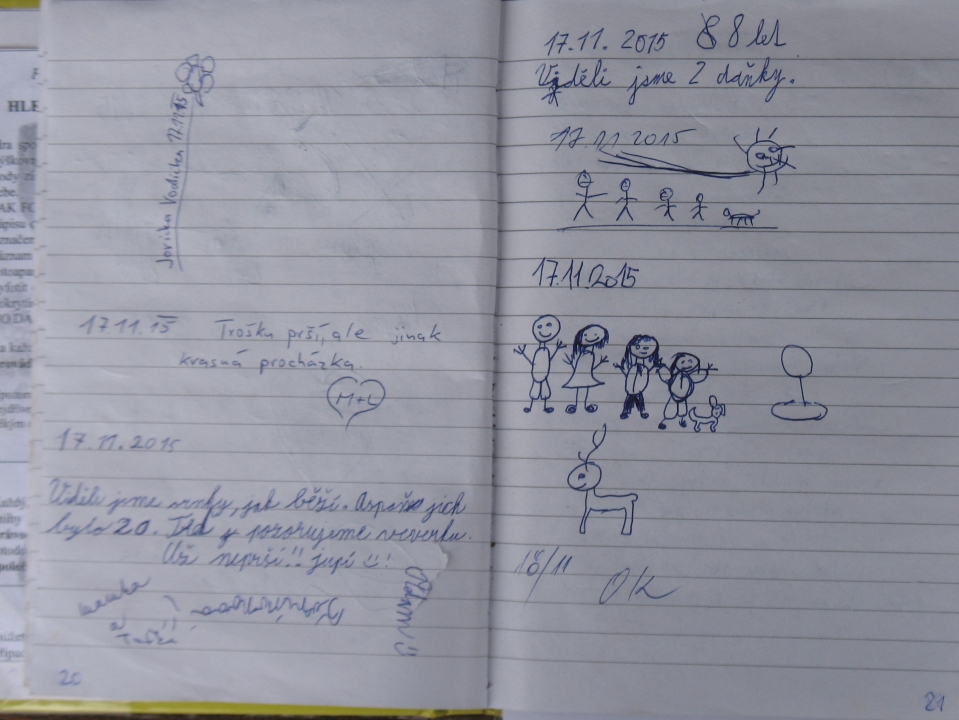 Joriika Vodička 17.11.15
17.11.15 Troška prší, ale jinak
krasná procházka.
M+L
17.11.2015
Viděli jsme srnky, jak běží. Aspoň jich
bylo 20. pozorujeme veverku.
Už neprší!! jupí !
20
17.11. 2015 8 8 let
Viděli jsme 2 daňky.
17.11.2015
17.11.2015
18/11 OK
21